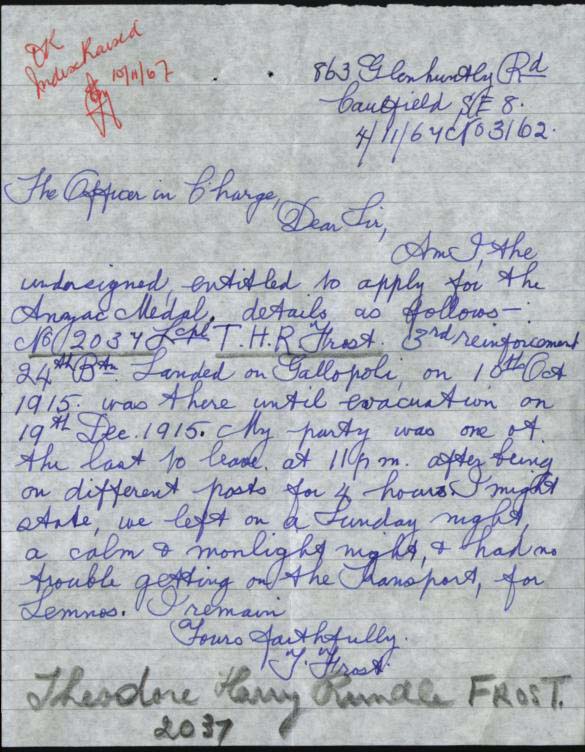 OK
Index Raised
10/11/67
863 Glenhuntly Rd
Caulfield S.E 8.
4/11/67 No 3162.
The Officer in Charge,
Dear Sir,
Am I, the
undersigned, entitled to apply for the
Anzac Medal, details as follows—
No 2037 L/cpl T. H. R Frost. 3rd reinforcement
24th Btn. Landed on Gallopoli, on 10th Oct
1915. was there until evacuation on
19th Dec. 1915. My party was one of
the last to leave. at 11 p m. after being
on different posts for 4 hours. I might
state, we left on a Sunday night,
a calm & monlight night, & had no
trouble getting on the Transport, for
Lemnos. I remain
Yours faithfully.
T. Frost.
Theodore Harry Rundle FROST.
2037